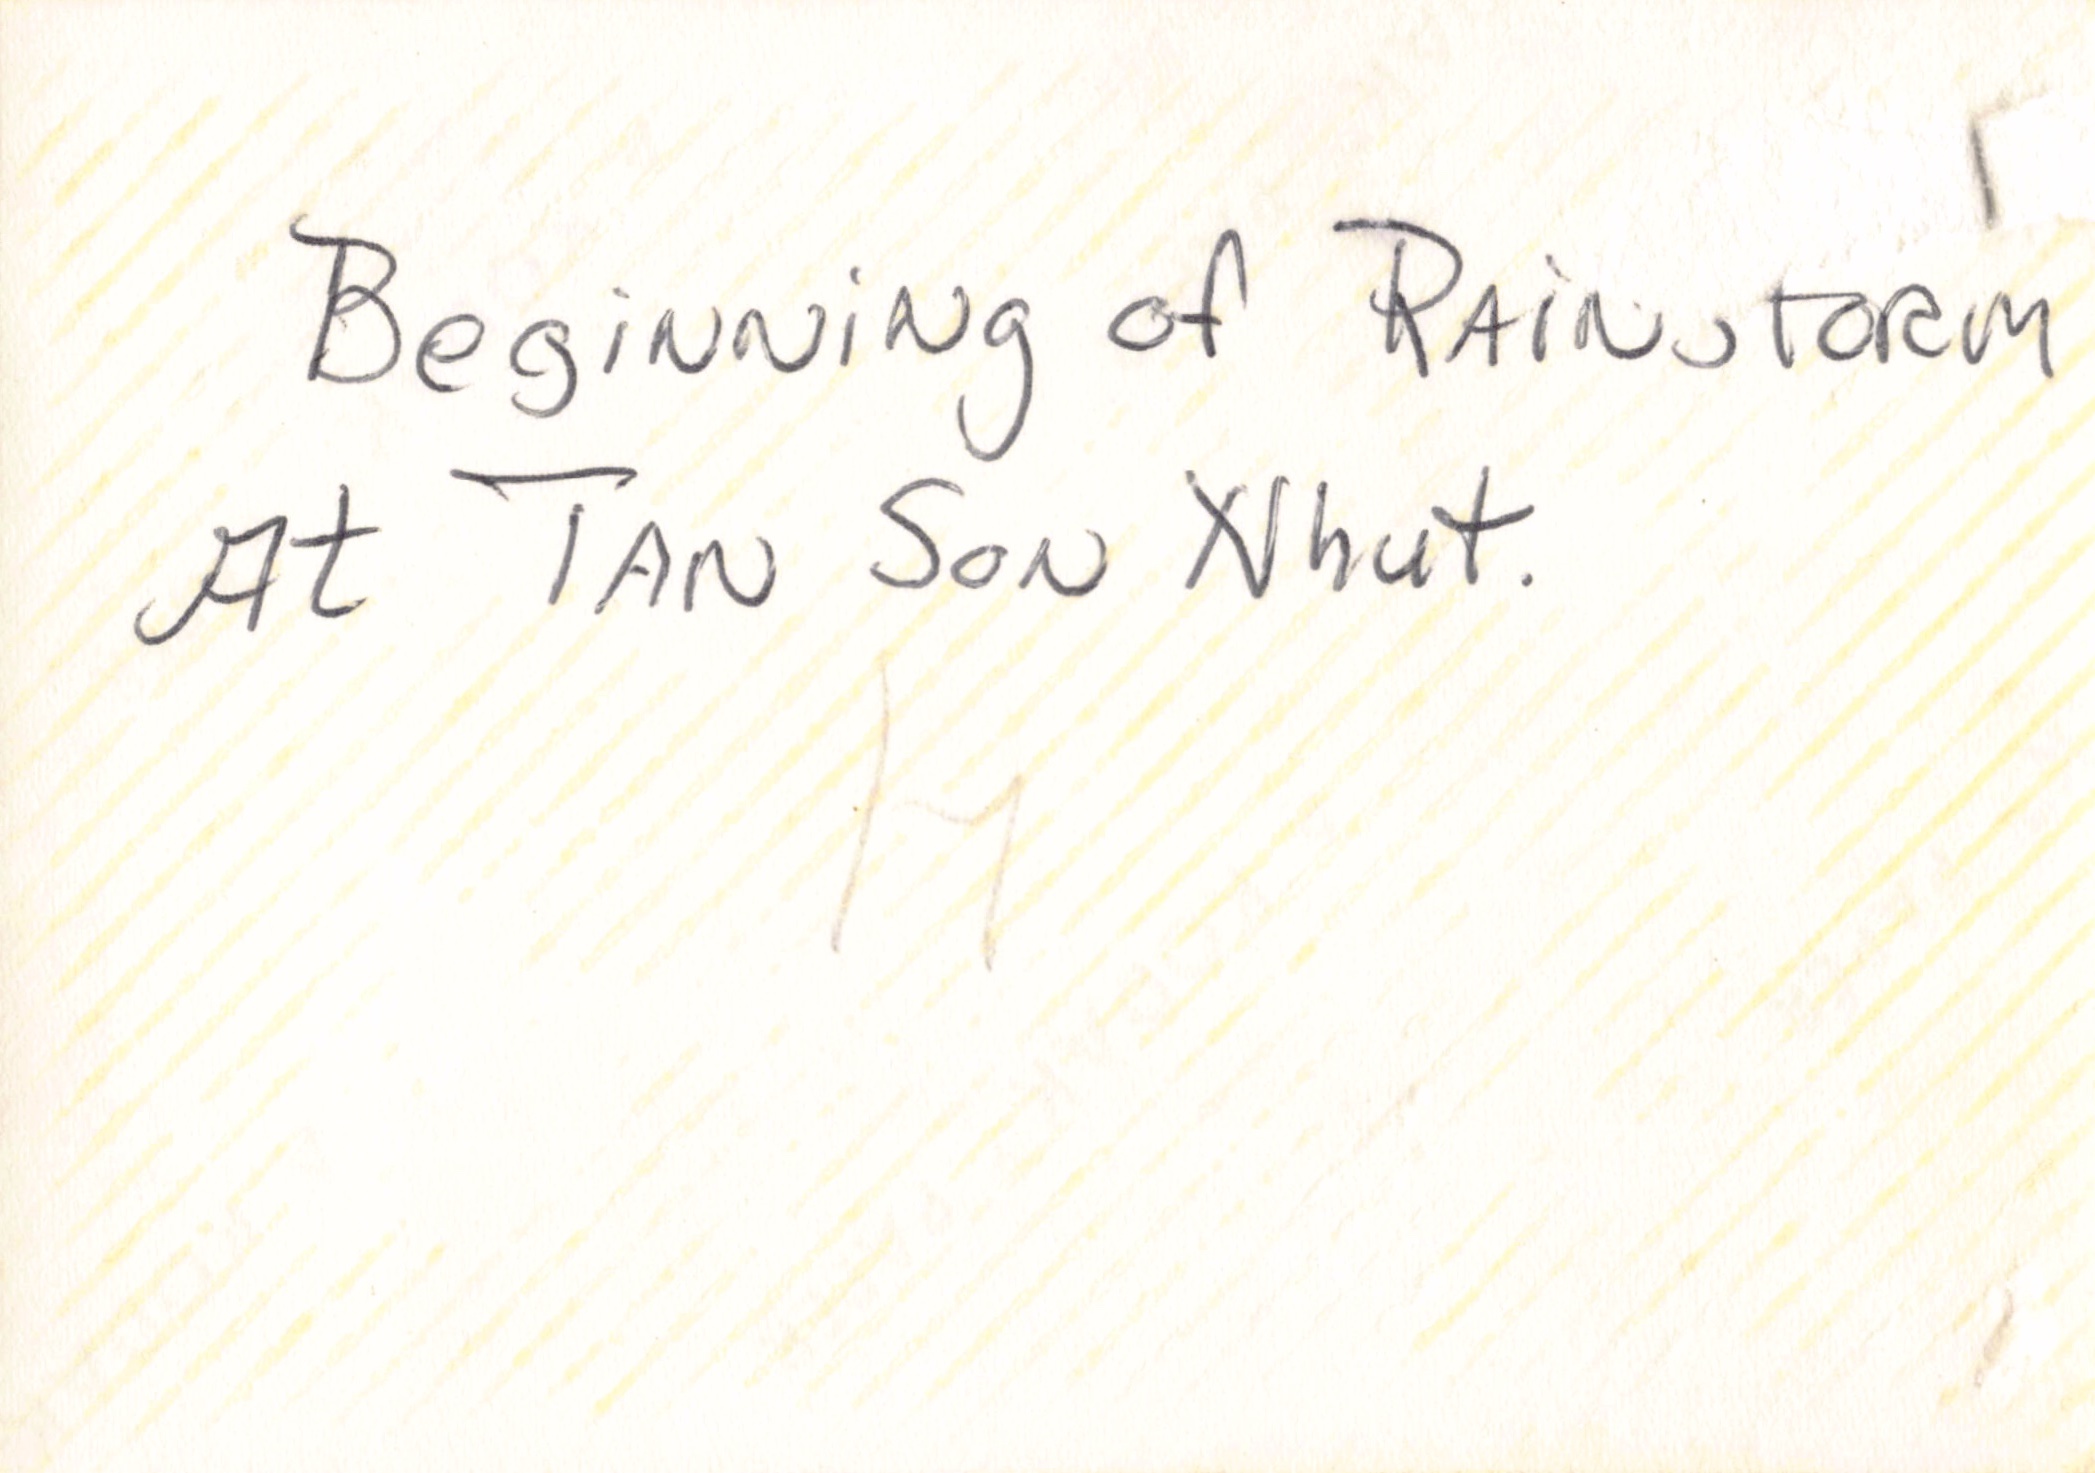 Beginning of Rainstorm
At Tan Son Nhut.